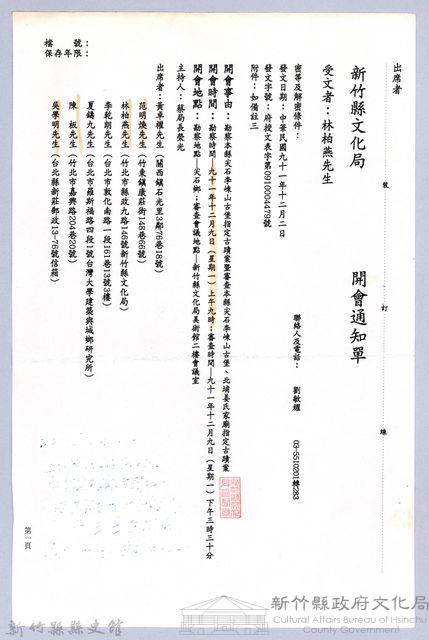 檔號：
保存年限：
出席者
新竹縣文化局　開會通知單
受文者：林柏燕先生
裝
訂
線
密等及解密條件：
發文日期：中華民國九十一年十二月二日
發文字號：府授文表字第0910004479號
附件：如備註三
聯絡人及電話：劉敏耀　03-5510201轉283
開會事由：勘察本縣尖石李崠山古堡指定古蹟案暨審查本縣尖石李崠山古堡、北埔姜氏家廟指定古蹟案
開會時間：勘察時間—九十一年十二月九日（星期一）上午九時；審查時間—九十一年十二月九日（星期一）下午三時三十分
開會地點：勘察地點—尖石鄉；審查會議地點—新竹縣文化局美術館二樓會議室
主持人：蔡局長榮光
出席者：黃卓權先生（關西鎮石光里3鄰76巷18號）
范明煥先生（竹東鎮康莊街148巷66號）
林柏燕先生（竹北市縣政九路146號新竹縣文化局）
李乾朗先生（台北市敦化南路一段161巷13號3樓）
夏鑄九先生（台北市羅斯福路四段1號台灣大學建築與城鄉研究所）
陳　板先生（竹北市嘉興路204巷20號）
吳學明先生（台北縣新莊郵政13-76號信箱）
第一頁
新竹縣縣史館
新竹縣政府文化局
Cultural Affairs Bureau of Hsinchu
County Government